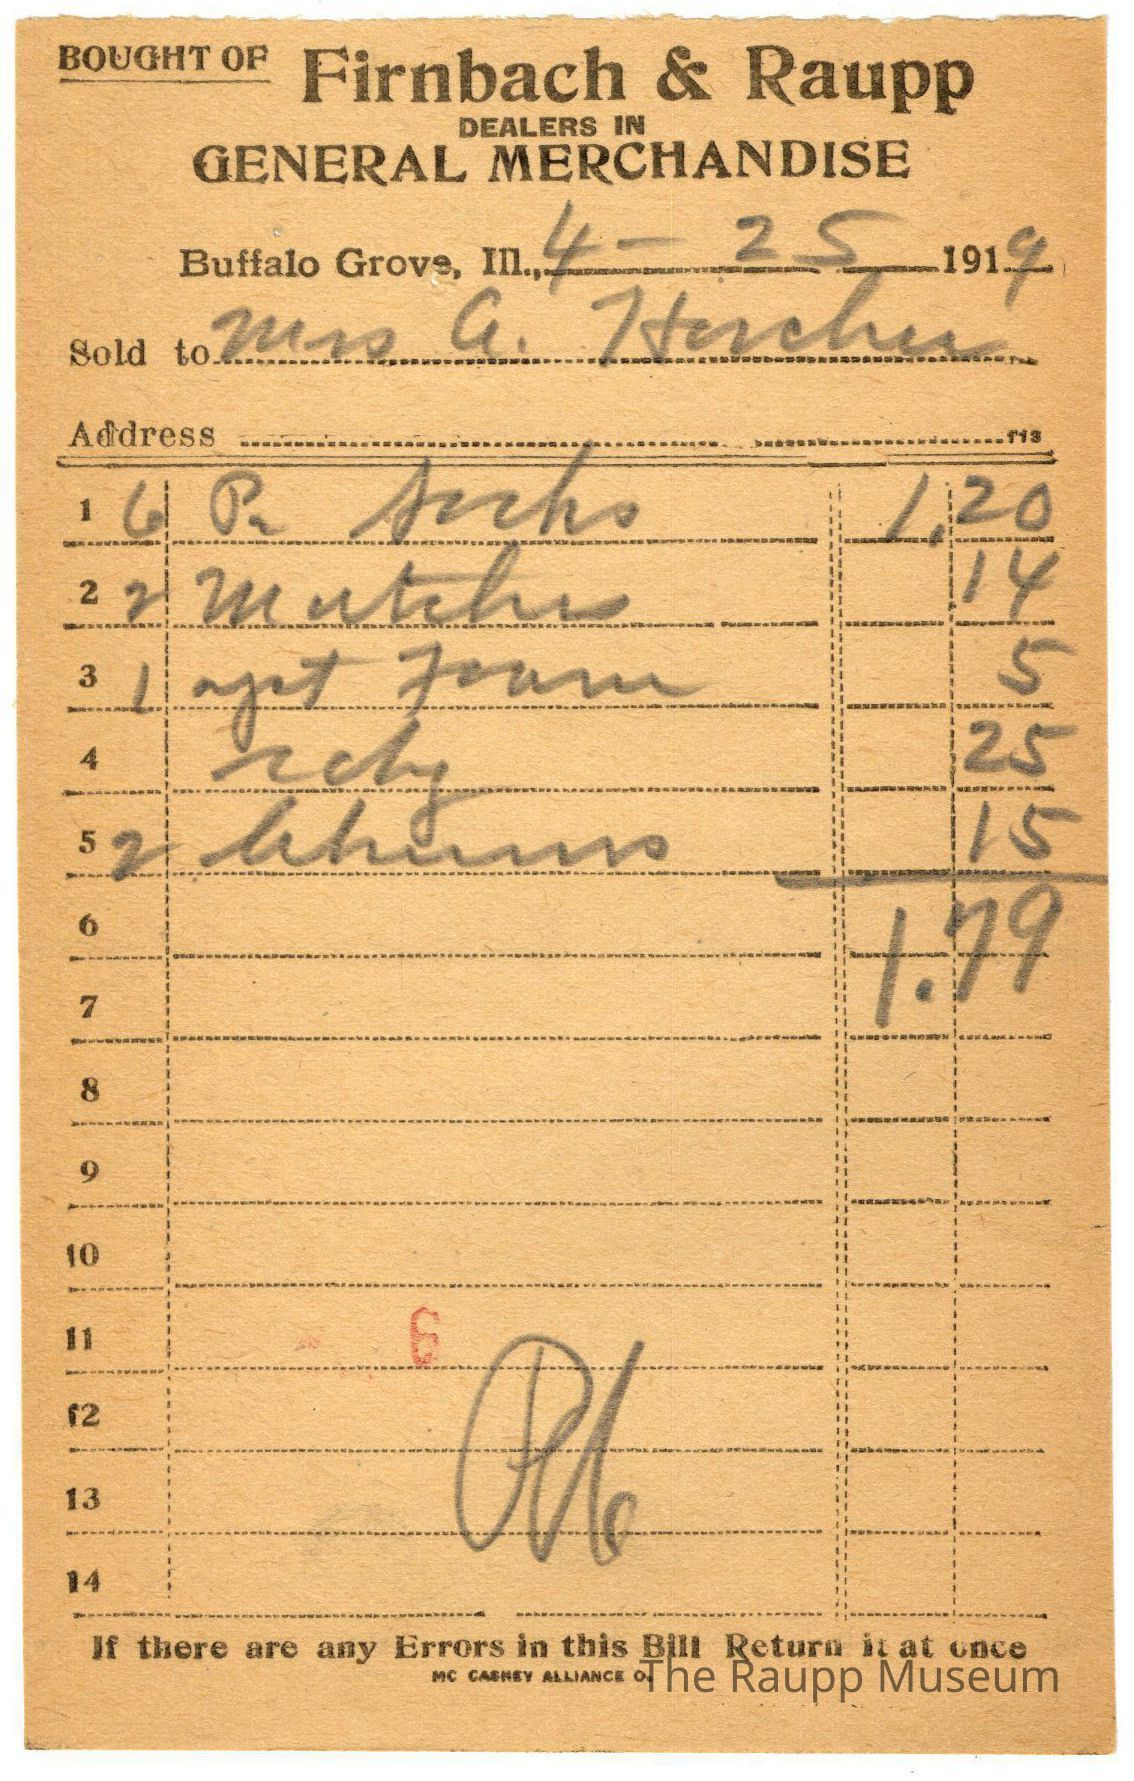 BOUGHT OF Firnbach & Raupp
DEALERS IN
GENERAL MERCHANDISE
Buffalo Grove, Ill., 4 - 25 1919
Sold to Mrs A.
Address
1 6 Pr Socks 1.20
2 2 Matches 14
3 1 5
4 25
5 2 15
1.79
6
7
8
9
10
11
6
12
13
14
If there are any Errors in this Bill Return it at once
MC CASKEY ALLIANCE O.
The Raupp Museum